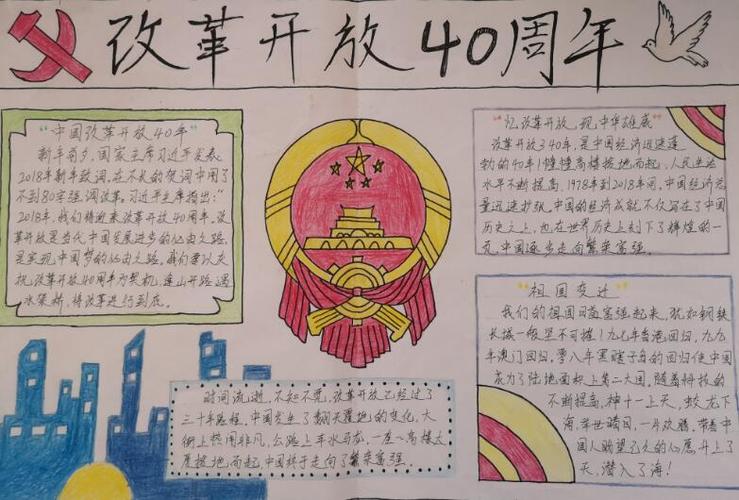 改革开放40周年
“中国改革开放40年”
新年前夕,国家主席习近平发表
2018年新年致词,在不长的贺词中用了
不到80字强调改革。习近平主席指出:“
2018年,我们将迎来改革开放40周年。改
革开放是当代中国发展进步的必由之路,
是实现中国梦的必由之路。我们要以庆
祝改革开放40周年为契机,逢山开路,遇
水架桥,将改革进行到底。
“忆改革开放,现中华雄威”
改革开放了40年,是中国经济迅速蓬
勃的40年!幢幢高楼拔地而起,人民生活
水平不断提高,1978年到2018年间,中国经济总
量迅速扩张。中国的经济成就不仅写在了中国
历史之上,也在世界历史上刻下了辉煌的一
页,中国逐步走向繁荣富强。
“祖国变迁”
我们的祖国日益富强起来,犹如钢铁
长城一般坚不可摧!九七年香港回归,九九
年澳门回归,零八年黑瞎子岛的回归使中国
成为了陆地面积上第二大国,随着科技的
不断提高,神十一上天,蛟龙下
海,举世瞩目,一片欢腾,带着中
国人盼望已久的心愿升上了
天,潜入了海!
时间流逝,不知不觉,改革开放已经过了
三十年路程,中国发生了翻天覆地的变化,大
街上热闹非凡,公路上车水马龙,一座座高楼大
厦拔地而起,中国终于走向了繁荣富强。